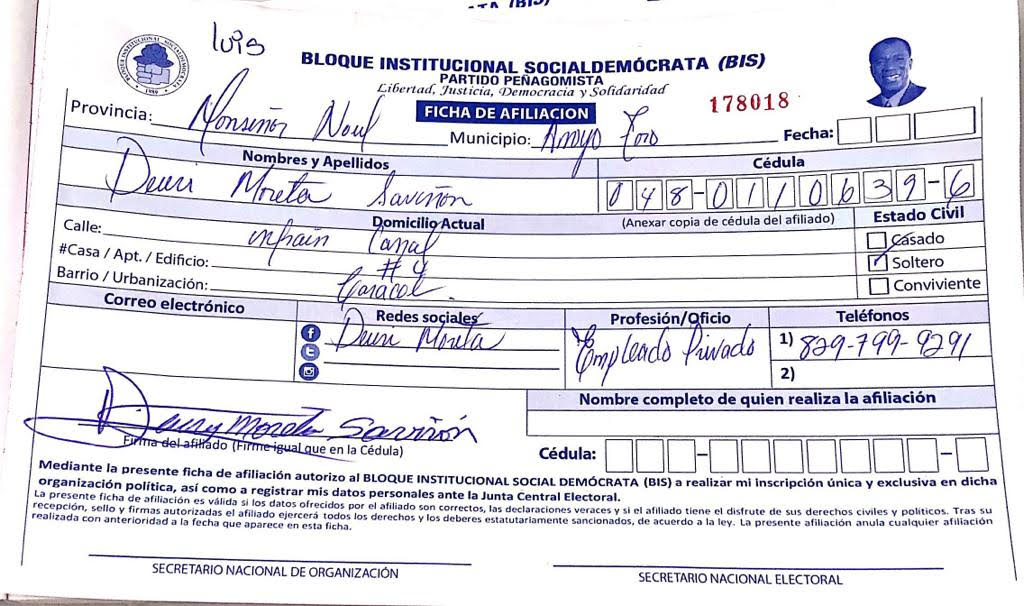 TA (BIS)
luis
BLOQUE INSTITUCIONAL SOCIALDEMÓCRATA (BIS)
PARTIDO PEÑAGOMISTA
Libertad, Justicia, Democracia y Solidaridad
BLOQUE INSTITUCIONAL SOCIALDEMOCRATA
1989
FICHA DE AFILIACION
178018
Provincia: Monseñor Nouel Municipio: Arroyo Toro Fecha:
Nombres y Apellidos Cédula
Deuri Moreta Saviñón 048-0110639-6
Domicilio Actual (Anexar copia de cédula del afiliado) Estado Civil
Calle: Casado
#Casa / Apt. / Edificio: #4 Soltero
Barrio / Urbanización: Caracol. Conviviente
Correo electrónico Redes sociales Profesión/Oficio Teléfonos
Deuri Moreta Empleado Privado 1) 829-799-9291
2)
Nombre completo de quien realiza la afiliación
Deury Moreta Saviñón
Firma del afiliado (Firme igual que en la Cédula) Cédula:
Mediante la presente ficha de afiliación autorizo al BLOQUE INSTITUCIONAL SOCIAL DEMÓCRATA (BIS) a realizar mi inscripción única y exclusiva en dicha
organización política, así como a registrar mis datos personales ante la Junta Central Electoral.
La presente ficha de afiliación es válida si los datos ofrecidos por el afiliado son correctos, las declaraciones veraces y si el afiliado tiene el disfrute de sus derechos civiles y políticos. Tras su
recepción, sello y firmas autorizadas el afiliado ejercerá todos los derechos y los deberes estatutariamente sancionados, de acuerdo a la ley. La presente afiliación anula cualquier afiliación
realizada con anterioridad a la fecha que aparece en esta ficha.
SECRETARIO NACIONAL DE ORGANIZACIÓN SECRETARIO NACIONAL ELECTORAL